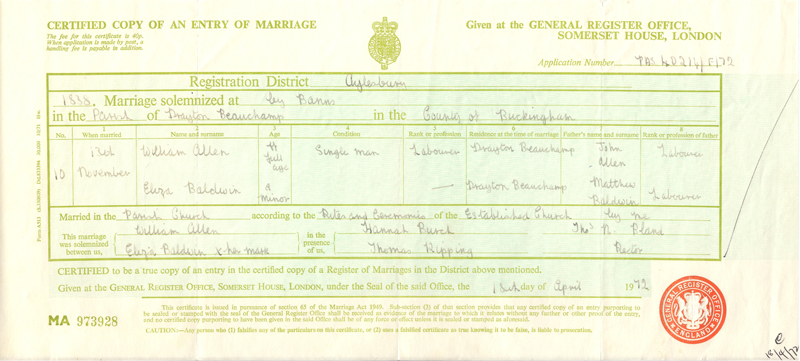 CERTIFIED COPY OF AN ENTRY OF MARRIAGE
Given at the GENERAL REGISTER OFFICE,
SOMERSET HOUSE, LONDON
The fee for this certificate is 40p.
When application is made by post, a
handling fee is payable in addition.
Application Number
Registration District Aylesbury
1838. Marriage solemnized at by Banns
in the Parish of Drayton Beauchamp in the County of Buckingham
1 2 3 4 5 6 7 8
No. When married Name and surname Age Condition Rank or profession Residence at the time of marriage Father's name and surname Rank or profession of father
10 13th November William Allen of full age Single man Labourer Drayton Beauchamp John Allen Labourer
Eliza Baldwin a Minor — Drayton Beauchamp Matthew Baldwin Labourer
Married in the Parish Church according to the Rites and Ceremonies of the Established Church by me
This marriage was solemnized between us, William Allen
Eliza Baldwin x her mark
in the presence of us, Hannah Burch
Thomas Kipping
Thos N. Bland
Rector
CERTIFIED to be a true copy of an entry in the certified copy of a Register of Marriages in the District above mentioned.
Given at the GENERAL REGISTER OFFICE, SOMERSET HOUSE, LONDON, under the Seal of the said Office, the day of April 1972
MA 973928
This certificate is issued in pursuance of section 65 of the Marriage Act 1949. Sub-section (3) of this section provides that any certified copy of an entry purporting to
be sealed or stamped with the seal of the General Register Office shall be received as evidence of the marriage to which it relates without any further or other proof of the entry,
and no certified copy purporting to have been given in the said Office shall be of any force or effect unless it is sealed or stamped as aforesaid.
CAUTION:—Any person who (1) falsifies any of the particulars on this certificate, or (2) uses a falsified certificate as true knowing it to be false, is liable to prosecution.
GENERAL REGISTER OFFICE
ENGLAND